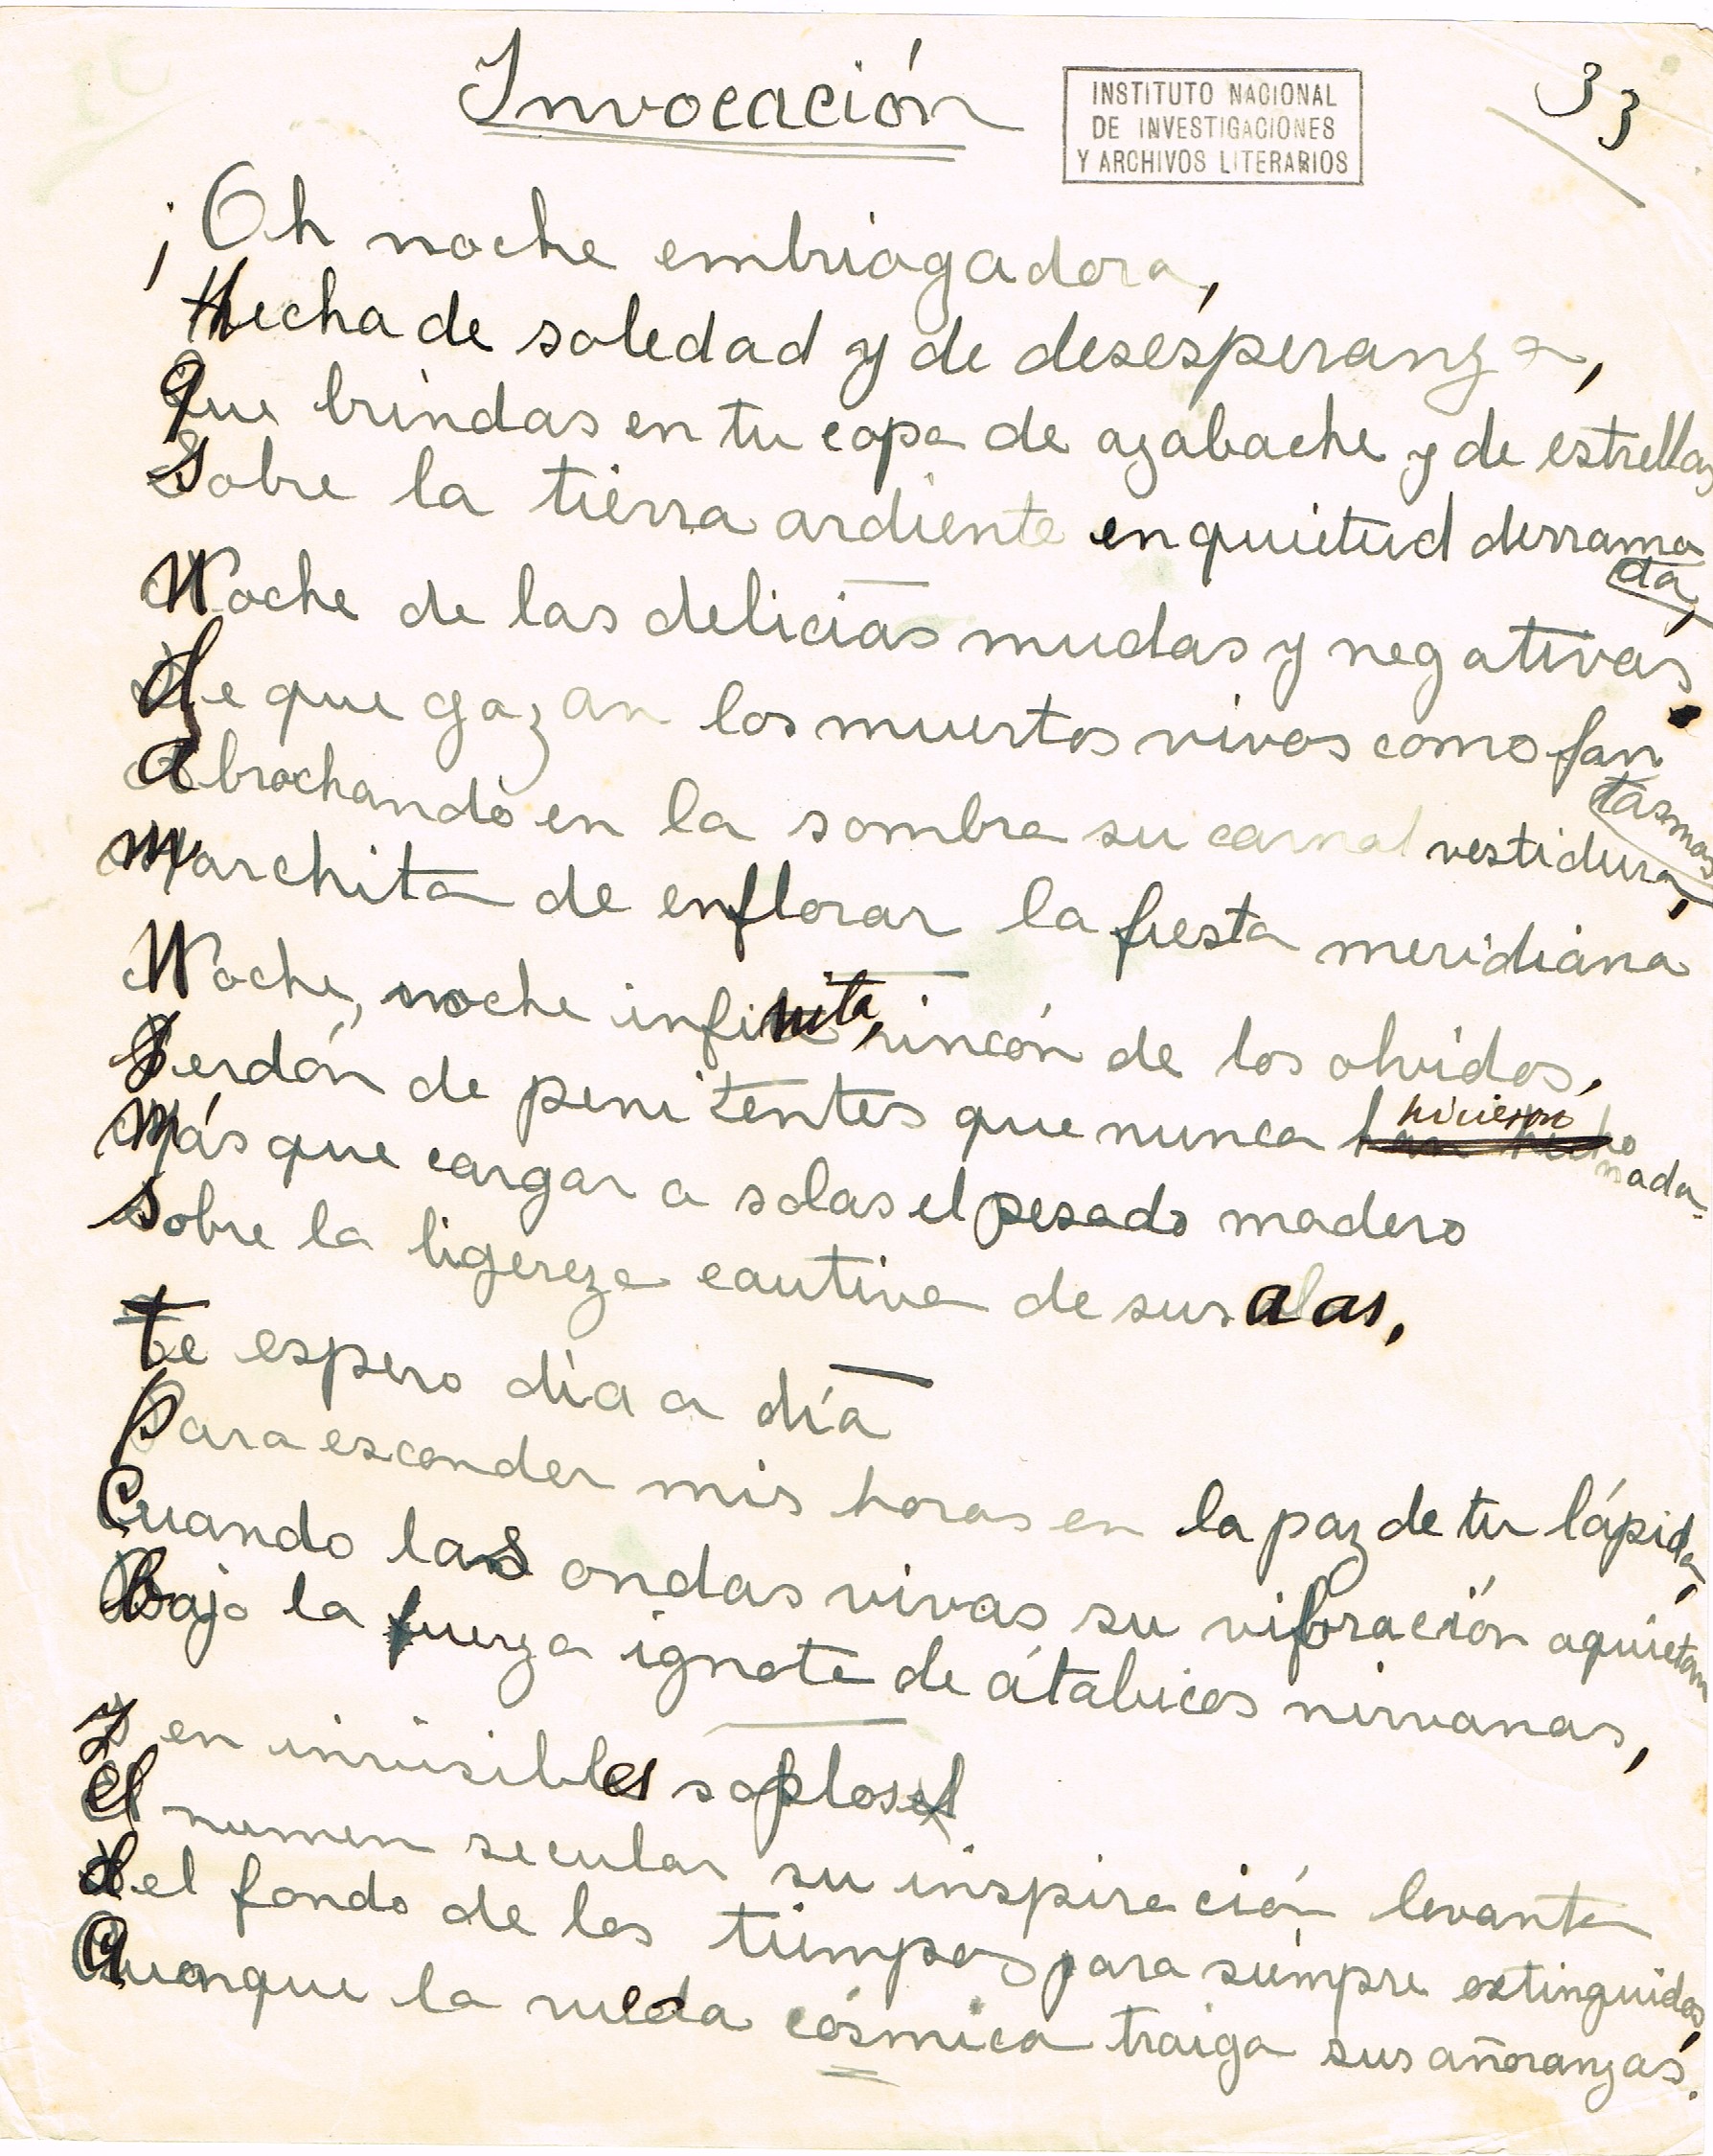 Invocación
INSTITUTO NACIONAL
DE INVESTIGACIONES
Y ARCHIVOS LITERARIOS
33
¡Oh noche embriagadora,
Hecha de soledad y de desesperanza,
Que brindas en tu copa de azabache y de estrellas
Sobre la tierra ardiente en quietud derrama
da,
Noche de las delicias mudas y negativas
de que gozan los muertos vivos como fan
tasmas
abrochando en la sombra su carnal vestidura,
marchita de enflorar la fiesta meridiana
Noche, noche infinita, rincón de los olvidos,
Perdón de penitentes que nunca hicieron
nada.
más que cargar a solas el pesado madero
sobre la ligereza cautiva de sus alas,
te espero día a día
Para esconder mis horas en la paz de tu lápida,
Cuando las ondas vivas su vibración aquietan
bajo la fuerza ignota de átabicos nirvanas,
y en invisibles soplos
el numen secular su inspiración levanta
del fondo de los tiempos para siempre extinguidos,
aunque la rueda cósmica traiga sus añoranzas.